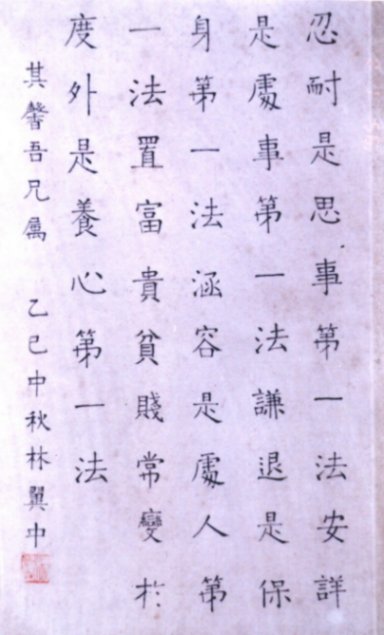 忍耐是思事第一法安詳
是處事第一法謙退是保
身第一法涵容是處人第
一法置富貴貧賤常變於
度外是養心第一法
其馨吾兄属 乙巳中秋林翼中